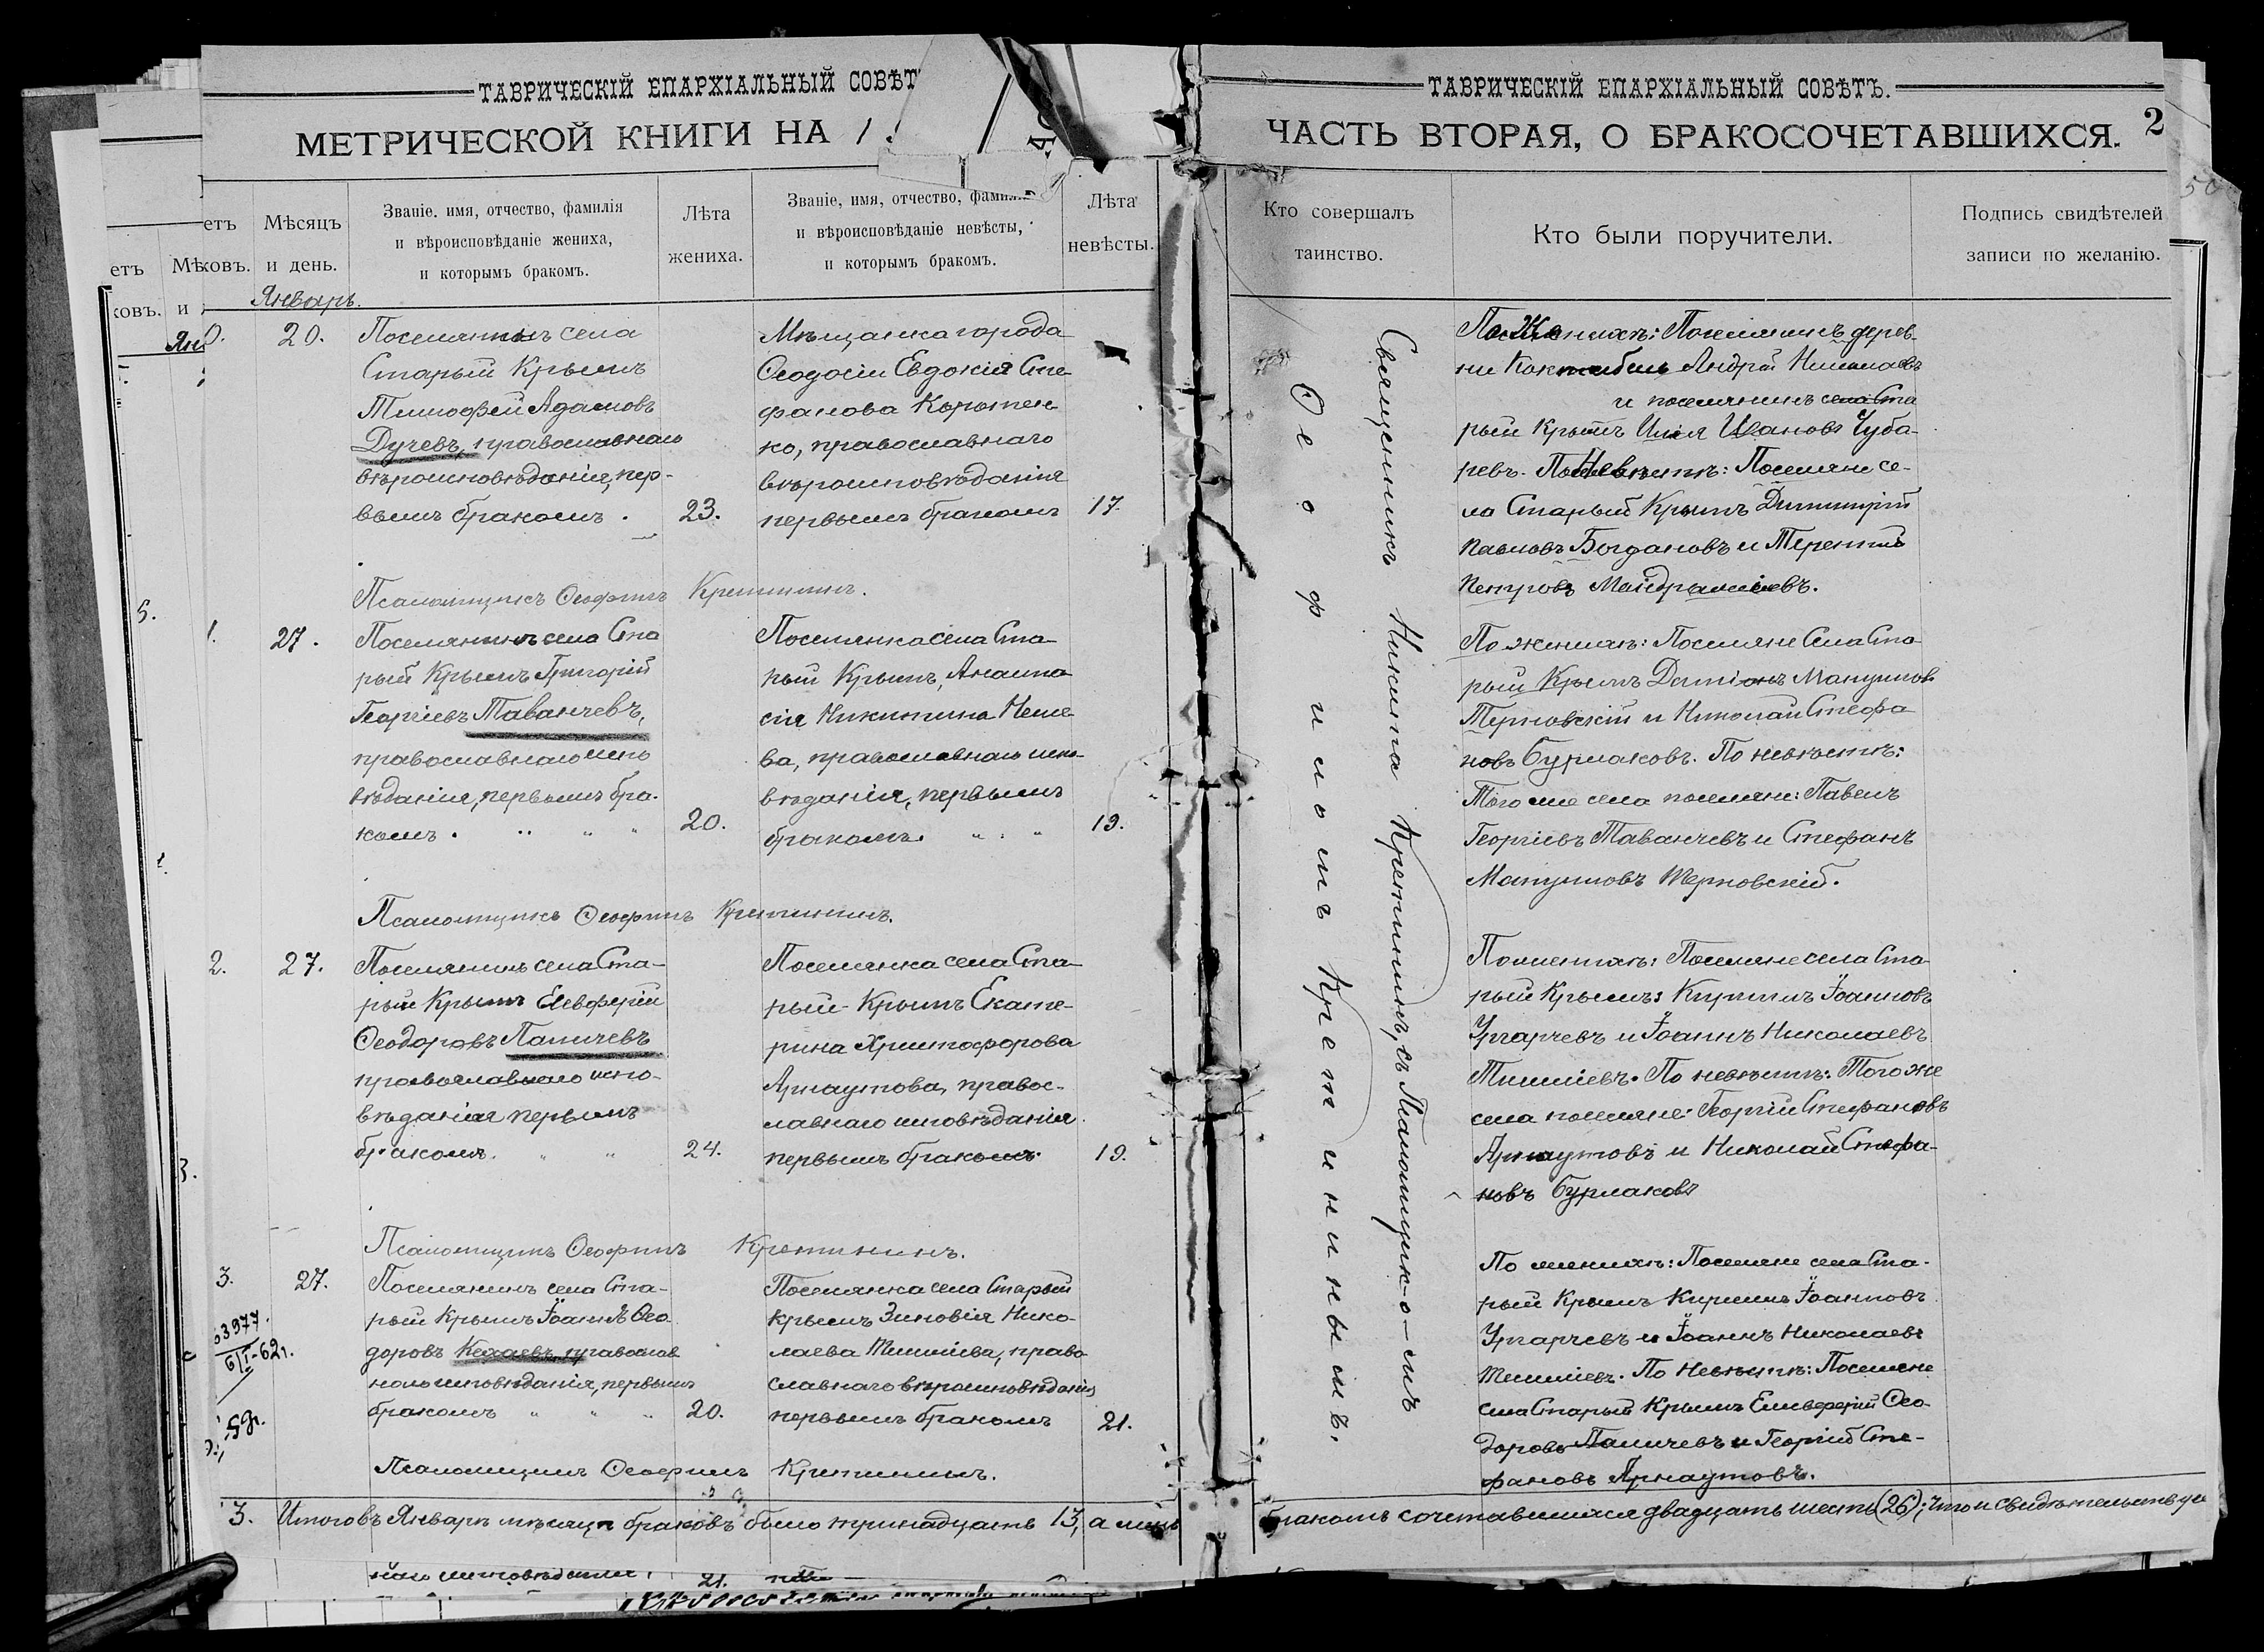 ТАВРИЧЕСКІЙ ЕПАРХІАЛЬНЫЙ СОВѢТ
МЕТРИЧЕСКОЙ КНИГИ НА 1
етъ
ковъ.
Мѣсяцъ
и день.
Званіе. имя, отчество, фамилія
и вѣроисповѣданіе жениха,
и которымъ бракомъ.
Лѣта
жениха.
Званіе, имя, отчество,
и вѣроисповѣданіе невѣсты,
и которымъ бракомъ.
Лѣта
невѣсты.
Январь.
20.
Поселянинъ села
Старый Крымъ
Тимофей Адамовъ
Дучевъ, православнаго
вѣроисповѣданія, пер-
вымъ бракомъ.
23.
Мѣщанка города
Ѳеодосіи Евдокія Сте-
фанова
ко, православнаго
вѣроисповѣданія
первымъ бракомъ
17.
Псаломщикъ Ѳеофилъ Кретининъ.
1.
27.
Поселянинъ села Ста
рый Крымъ Григорій
Георгіевъ Таванчевъ,
православнаго испо
вѣданія, первымъ бра-
комъ.
20.
Поселянка села Ста-
рый Крымъ, Анаста
сія Никитина
ва, православнаго испо-
вѣданія, первымъ
бракомъ.
19.
Псаломщикъ Ѳеофилъ Кретининъ.
2.
27.
Поселянинъ села Ста-
рый Крымъ Елевферій
Ѳеодоровъ Паничевъ
православнаго испо-
вѣданія первымъ
бракомъ.
24.
Поселянка села Ста-
рый Крымъ Екате-
рина Христофорова
Арнаутова, правос-
лавнаго исповѣданія
первымъ бракомъ.
19.
Псаломщикъ Ѳеофилъ Кретининъ.
3.
27.
Поселянинъ села Ста-
рый Крымъ Іоаннъ Ѳео
доровъ Кехаевъ, православ
наго исповѣданія, первымъ
бракомъ
20.
Поселянка села Старый
Крымъ Зиновія Нико-
лаева Тишліева, право
славнаго вѣроисповѣданія
первымъ бракомъ
21.
Псаломщикъ Ѳеофилъ Кретининъ.
3. Итого въ Январѣ мѣсяцѣ браковъ было тринадцать 13, а лицъ
ТАВРИЧЕСКІЙ ЕПАРХІАЛЬНЫЙ СОВѢТЪ.
ЧАСТЬ ВТОРАЯ, О БРАКОСОЧЕТАВШИХСЯ.
2
Кто совершалъ
таинство.
Кто были поручители.
Подпись свидѣтелей
записи по желанію.
Священникъ Никита Кретининъ, съ Псаломщик-о-мъ
Ѳеофиломъ Кретининымъ.
По Женихѣ: Поселянинъ дерев-
ни Коктебель Андрей Николаевъ
и поселянинъ села Ста
рый Крымъ Илія Ивановъ Чуба-
ревъ. По Невѣстѣ: Поселяне се-
ла Старый Крымъ Димитрій
Павловъ Богдановъ и Терентій
Петровъ
По женихѣ: Поселяне села Ста-
рый Крымъ Даміанъ Мануиловъ
Терновскій и Николай Стефа
новъ Бурлаковъ. По невѣстѣ:
Того же села поселяне: Павелъ
Георгіевъ Таванчевъ и Стефанъ
Мануиловъ Терновскій.
По женихѣ: Поселяне села Ста-
рый Крымъ: Кириллъ Іоанновъ
Узгарчевъ и Іоаннъ Николаевъ
Тишліевъ. По невѣстѣ: Того же
села поселяне: Георгій Стефановъ
Арнаутовъ и Николай Стефа-
новъ Бурлаковъ
По женихѣ: Поселяне села Ста-
рый Крымъ Кириллъ Іоанновъ
Узгарчевъ и Іоаннъ Николаевъ
Тишліевъ. По невѣстѣ: Поселяне
села Старый Крымъ Елевферій Ѳео-
доровъ Паничевъ и Георгій Сте-
фановъ Арнаутовъ.
бракомъ сочетавшихся двадцать шесть (26); что и свидѣтельствуя